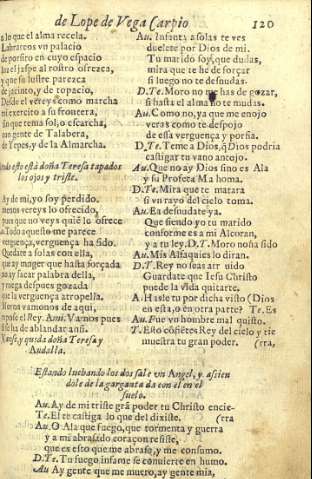 de Lope de Vega Carpio
120
a lo que el alma recela.
Labrareos vn palacio
de porfiro en cuyo espacio
el jaspe al rostro ofrezca,
y que su lustre parezca
de jacinto, y de topacio,
Desde el vereys como marcha
mi exercito a su frontera,
que tema sol, o escarcha,
con gente de Talabera,
de Yepes, y de la Almarcha.
está doña Teresa tapados
los ojos y triste.
Ay de mi, yo soy perdido.
vereys lo ofrecido,
pues que no veys quiē le ofrece
Todo aquesto me parece
verguença, verguença ha sido.
Quedate a solas con ella,
que ay muger que halla forçada
no ay sacar palabra della,
y ruega despues gozada
que la verguença atropella.
vamonos de aqui,
el Rey. Ami. Vamos pues
se ha de ablandar ansi.
Vanse, y queda doña Teresa y
Audalla.
Au. Infanta a solas te ves
duelete por Dios de mi.
Tu marido soy, que dudas,
mira que te he de forçar
si luego no te desnudas.
D.Te. Moro no me has de gozar,
si hasta el alma no te mudas.
Au. Como no, ya que me enojo
veras como te despojo
de essa verguença y porfia.
D.Te. Teme a Dios, q̃ Dios podria
castigar tu vano antojo.
Au. Que no ay Dios sino es Ala
y su Profeta Mahoma.
D.Te. Mira que te matara
si vn rayo del cielo toma.
Au. Ea desnudate ya.
Que siendo yo tu marido
conforme es a mi Alcoran,
y a tu ley. D.T. Moro no ha sido
Au. Mis Alfaquies lo diran.
D.T. Rey no seas atreuido
Guardate que Iesu Christo
puede la vida quitarte.
A. Hasle tu por dicha visto (Dios
en esta, o en otra parte? Te. Es
Au. Fue vn hombre mal quisto.
T. Esto cōsiētes Rey del cielo y tie
muestra tu gran poder. (rra,
Estando luchando los dos sale vn Angel, y assien
dole de la garganta da con el en el
suelo.
Au. Ay de mi triste grā poder tu Christo encie-
Te. El te castiga lo que del dixiste. (rra
Au. O Ala que fuego, que tormenta y guerra
y a mi abrasado coraçon resiste,
que es esto que me abrasa, y me consumo.
D.Te. Tu fuego infame se conuierte en humo.
Au Ay gente que me muero, ay gente mia,